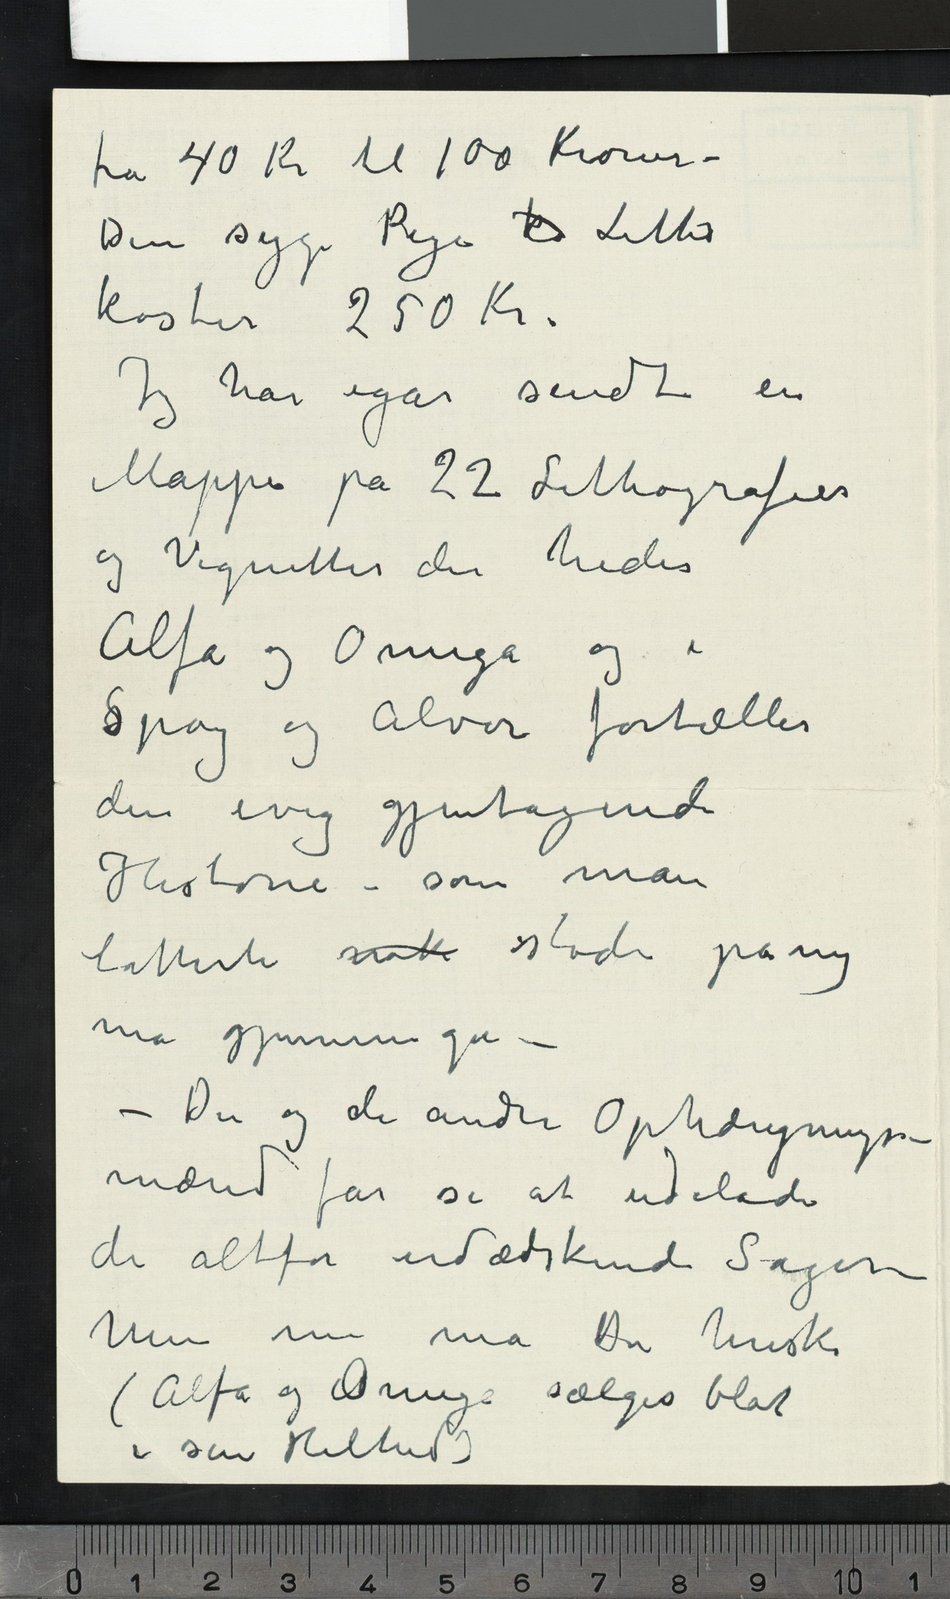 fra 40 Kr til 100 Kroner –
Den syge Pige Litho
koster 250 Kr.
Jeg har igår sendt en
Mappe på 22 Lithografier
og Vignetter der hedes
Alfa og Omega og i
Spøg og Alvor fortæller
den evig gjentagende
Historie – som man
latterli stadi påny
ma gjennemga –
– Du og de andre Ophængnings–
mænd får se at udelade
de altfor udæskende Sager –
Men nu ma Du huske
(Alfa og Omega sælges blot
i sin Helhed)
0 1 2 3 4 5 6 7 8 9 10 1